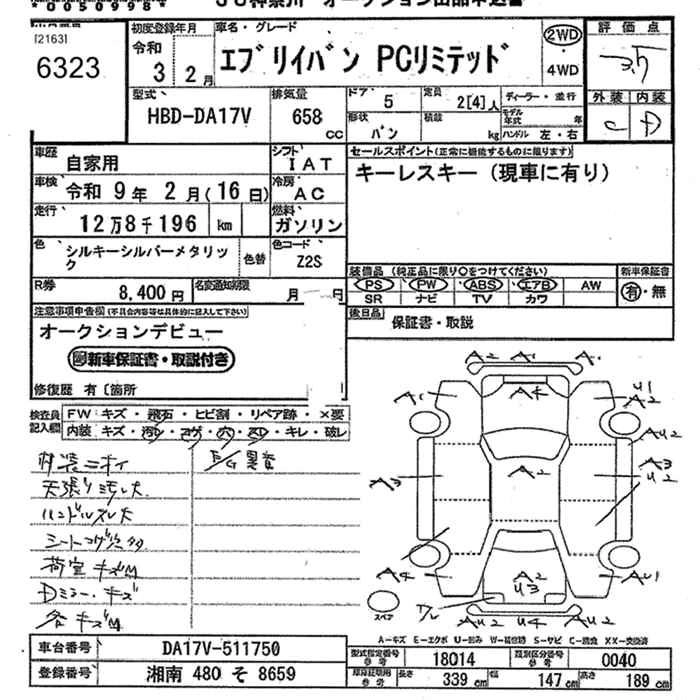 [2163]
6323
初度登録年月
令和
3 2月
車名・グレード
エブリイバン PCリミテッド
2WD
・
4WD
評価点
3.5
外装 内装
C D
型式
HBD-DA17V
排気量
658 cc
ドア
5
定員
2[4]人
形状
バン
積載
kg
ディーラー・並行
モデル年式 年
ハンドル 左・右
車歴
自家用
シフト
IAT
車検
令和 9年 2月(16日)
冷房
AC
走行
12万8千196 km
燃料
ガソリン
色
シルキーシルバーメタリック
色替
色コード
Z2S
R券
8,400円
名変通知期限
月 日
セールスポイント(正常に機能するものに限ります)
キーレスキー(現車に有り)
装備品(純正品に限り○をつけてください)
新車保証書
PS PW ABS エアB AW
SR ナビ TV カワ
有・無
後日品
保証書・取説
注意事項申告欄(不具合内容等は具体的に記入して下さい)
オークションデビュー
新車保証書・取説付き
修復歴 有〔箇所
検査員記入欄
FW キズ・飛石・ヒビ割・リペア跡・×要
内装 キズ・汚レ・コゲ・穴・スレ・キレ・破レ
内装ニオイ
E/G異音
天張り汚レ大
ハンドルスレ大
シートコゲ穴多
荷室キズM
Dミラーキズ
各キズM
A2 A1 A1
A1 A4 U1
A2
AU2
A3 A2 A3
U2
A4 A2 AU1
U3
ワレ
スペア
AU2 U4 AU2
A-キズ E-エクボ U-凹み W-補修跡 S-サビ C-腐食 XX-交換済
車台番号
DA17V-511750
登録番号
湘南 480 そ 8659
型式指定番号
参考
18014
類別区分番号
参考
0040
長さ
339cm
幅
147cm
高さ
189cm